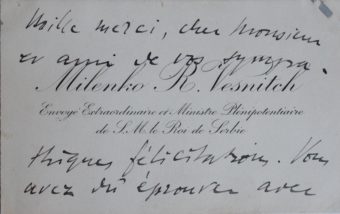 Mille merci, cher Monsieur
et ami de vos sympa-
Milenko R. Vesnitch
Envoyé Extraordinaire et Ministre Plénipotentiaire
de S.M. le Roi de Serbie
thiques félicitations. Vous
avez dû éprouver avec